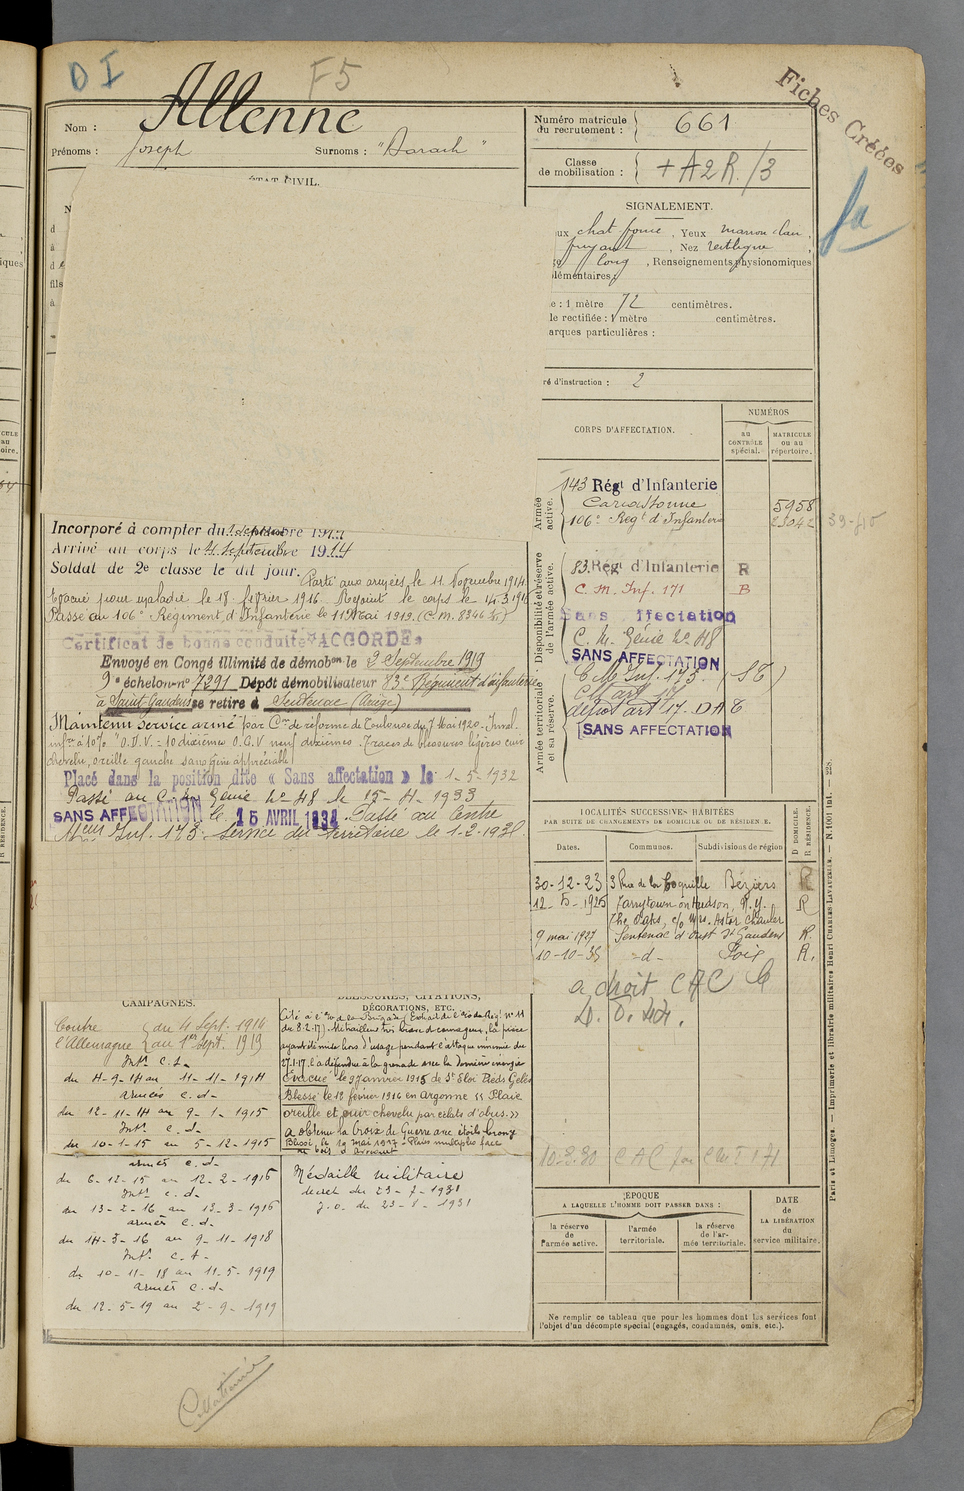 D I
F5
Fiches Créées
Nom : Allenne
Prénoms : Joseph Surnoms : "Barach"
Numéro matricule du recrutement : 661
Classe de mobilisation : + A2R./3
ÉTAT CIVIL.
SIGNALEMENT.
chat foncé, Yeux marron clair,
fuyant, Nez rectiligne,
long, Renseignements physionomiques
lémentaires :
e : 1 mètre 72 centimètres.
le rectifiée : 1 mètre centimètres.
arques particulières :
ré d'instruction : 2
CORPS D'AFFECTATION.
NUMÉROS
au CONTRÔLE spécial.
MATRICULE ou au répertoire.
Armée active.
143 Régt d'Infanterie
Carcassonne 5958
106e Régt d'Infanterie
39-f15
Disponibilité et réserve de l'armée active.
83 Régt d'Infanterie R
C. M. Inf. 171 B
Sans ffectation
C. M. Génie No 48
SANS AFFECTATION
Armée territoriale et sa réserve.
C M Inf. 173. (ST)
C M art 17
dépôt art 17. DAT
SANS AFFECTATION
Incorporé à compter du septembre 1914
Arrivé au corps le 4 Septembre 1914
Soldat de 2e classe le dit jour. Parti aux armées le 11 Novembre 1914.
Evacué pour maladie le 18 février 1916. Rejoint le corps le 14.3.1916
Passé au 106e Régiment d'Infanterie le 11 Mai 1919. (C.M. 8346 )
Certificat de bonne conduite "ACCORDÉ"
Envoyé en Congé illimité de démobon le 2 Septembre 1919
9e échelon no 7291 Dépôt démobilisateur 83e Régiment d'infanterie
à Saint Gaudens se retire à Sentenac (Ariège)
Maintenu service armé par Con de réforme de Toulouse du 7 Mai 1920. Inval.
infre à 10% "O.D.V. = 10 dixièmes O.G.V neuf dixièmes. Traces de blessures légères cuir
chevelu, oreille gauche sans gêne appréciable"
Placé dans la position dite « Sans affectation » le 1-5-1932
Passé au C. M. Génie No 48 le 15-4-1933
SANS AFFECTATION le 15 AVRIL 1934 Passé au Centre
Meur Inf. 173. Service du territoire le 1-2-193
LOCALITÉS SUCCESSIVES HABITÉES
PAR SUITE DE CHANGEMENTS DE DOMICILE OU DE RÉSIDENCE.
Dates. Communes. Subdivisions de région D DOMICILE. R RÉSIDENCE.
30-12-23 3 Rue de la Coquille Béziers R
12-5-1925 Tarrytown on Hudson, N.Y. R
The Oaks, c/o Mrs. Astor Chanler
9 mai 1927 Sentenac d'Oust St Gaudens R.
10-10-35 -d- Foix R.
a droit CAC
10-3-30 CAC par CMI 171
CAMPAGNES.
Contre l'Allemagne du 4 Sept. 1914 au 1er Sept. 1919
Intr C.S.
du 4-9-14 au 11-11-1914
armées C.d.
du 12-11-14 au 9-1-1915
Intr C.d.
du 10-1-15 au 5-12-1915
armées C.d.
du 6-12-15 au 12-2-1916
Intr C.d.
du 13-2-16 au 13-3-1916
armées C.d.
du 14-3-16 au 9-11-1918
Intr C.d.
du 10-11-18 au 11-5-1919
armées C.d.
du 12-5-19 au 2-9-1919
BLESSURES, CITATIONS, DÉCORATIONS, ETC.
Cité à l'O. de la Brigade, Extrait de l'O. du Régt no 11
du 8.2.17). Mitrailleur très brave et courageux, la pièce
ayant été mise hors d'usage pendant l'attaque ennemie du
27.1.17, l'a défendue à la grenade avec la dernière énergie
Evacué le 9 Janvier 1915 de St Eloi Pieds Gelés
Blessé le 12 février 1916 en Argonne « Plaie
oreille et cuir chevelu par éclats d'obus. »
A obtenu la Croix de Guerre avec étoile bronze
Blessé, le 19 mai 1917. Plaies multiples face
au bois d'Avocourt
Médaille militaire
décret du 23-7-1931
J.O. du 23-8-1931
ÉPOQUE
A LAQUELLE L'HOMME DOIT PASSER DANS :
la réserve de l'armée active.
l'armée territoriale.
la réserve de l'armée territoriale.
DATE de LA LIBÉRATION du service militaire.
Ne remplir ce tableau que pour les hommes dont les services font
l'objet d'un décompte spécial (engagés, condamnés, omis, etc.).
Paris et Limoges. — Imprimerie et librairie militaires Henri CHARLES-LAVAUZELLE. — N. 1001 Int. — 228.